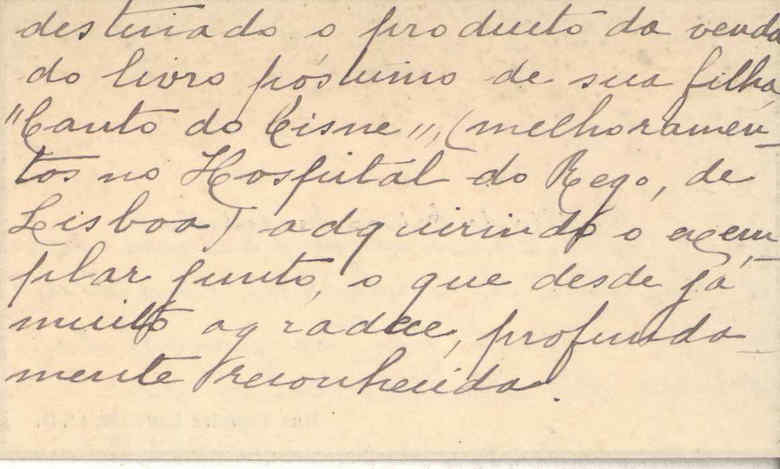 destinado o producto da venda
do livro póstumo de sua filha,
"Canto do Cisne", (melhoramen-
tos no Hospital do Rego, de
Lisboa) adquirindo o exem-
plar junto, o que desde já
muito agradece, profunda-
mente reconhecida.